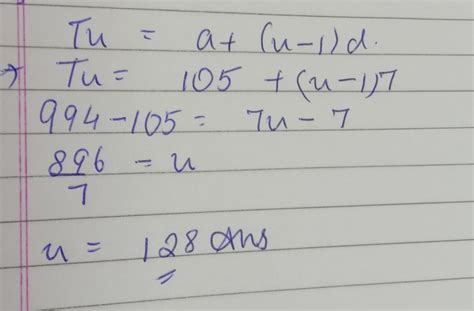 Tn = a + (n-1)d.
→ Tn = 105 + (n-1)7
994 - 105 = 7n - 7
896/7 = n
n = 128 Ans